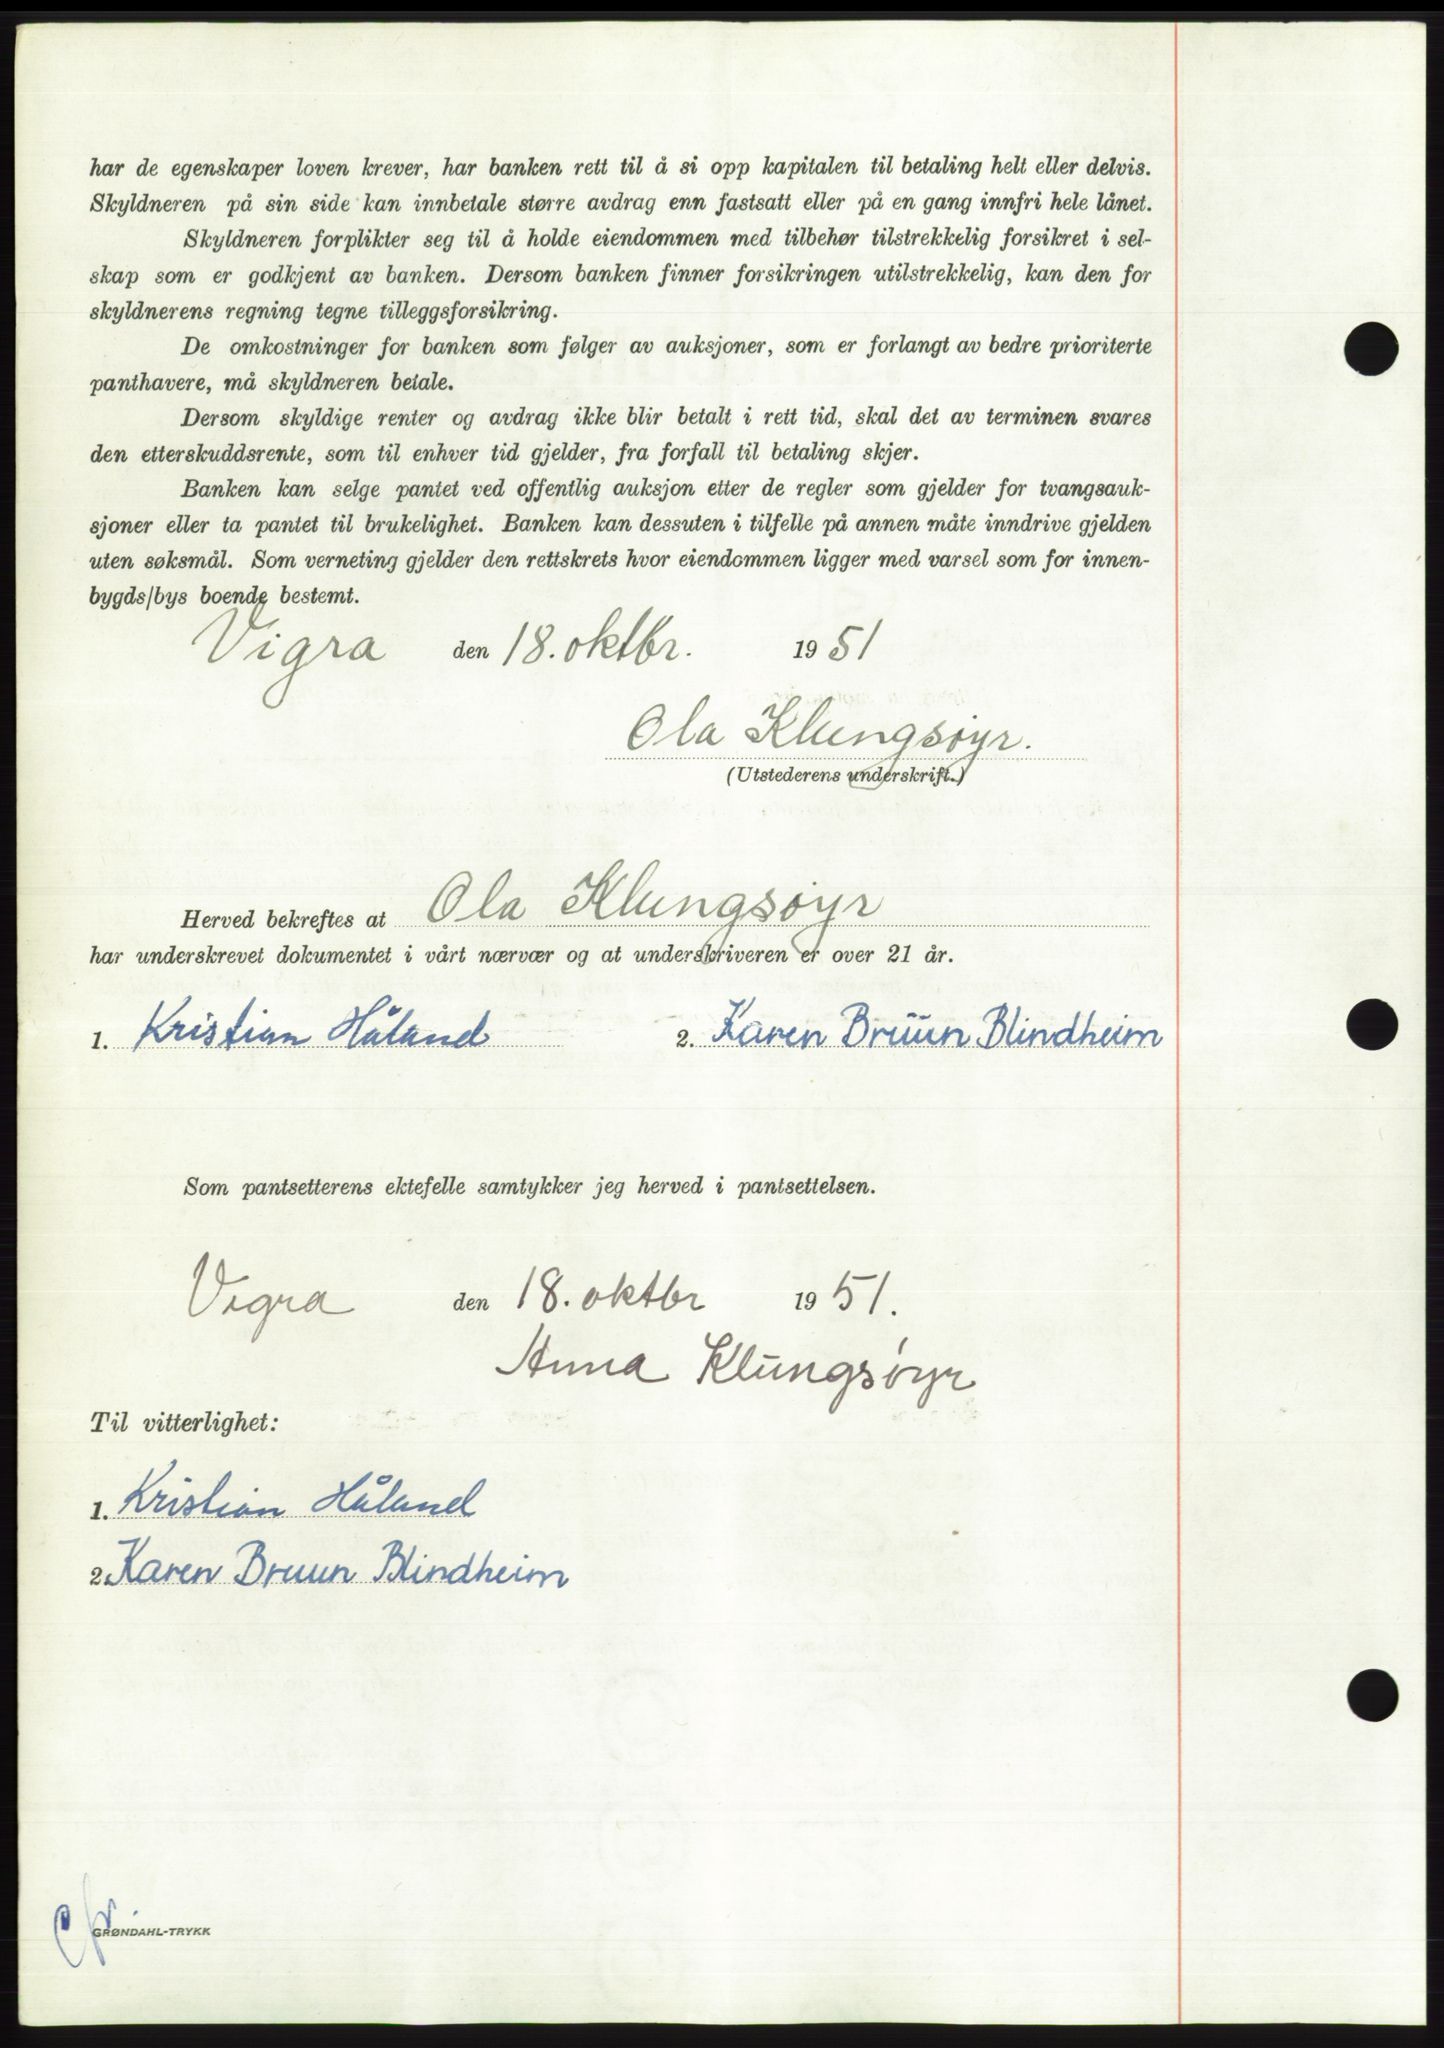 har de egenskaper loven krever, har banken rett til å si opp kapitalen til betaling helt eller delvis.
Skyldneren på sin side kan innbetale større avdrag enn fastsatt eller på en gang innfri hele lånet.
Skyldneren forplikter seg til å holde eiendommen med tilbehør tilstrekkelig forsikret i sel-
skap som er godkjent av banken. Dersom banken finner forsikringen utilstrekkelig, kan den for
skyldnerens regning tegne tilleggsforsikring.
De omkostninger for banken som følger av auksjoner, som er forlangt av bedre prioriterte
panthavere, må skyldneren betale.
Dersom skyldige renter og avdrag ikke blir betalt i rett tid, skal det av terminen svares
den etterskuddsrente, som til enhver tid gjelder, fra forfall til betaling skjer.
Banken kan selge pantet ved offentlig auksjon etter de regler som gjelder for tvangsauk-
sjoner eller ta pantet til brukelighet. Banken kan dessuten i tilfelle på annen måte inndrive gjelden
uten søksmål. Som verneting gjelder den rettskrets hvor eiendommen ligger med varsel som for innen-
bygds/bys boende bestemt.
Vigra den 18. oktbr. 1951
Ola Klungsøyr.
(Utstederens underskrift.)
Herved bekreftes at Ola Klungsøyr
har underskrevet dokumentet i vårt nærvær og at underskriveren er over 21 år.
1. Kristian Håland 2. Karen Bruun Blindheim
Som pantsetterens ektefelle samtykker jeg herved i pantsettelsen.
Vigra den 18. oktbr 1951.
Anna Klungsøyr
Til vitterlighet:
1. Kristian Håland
2. Karen Bruun Blindheim
GRØNDAHL-TRYKK